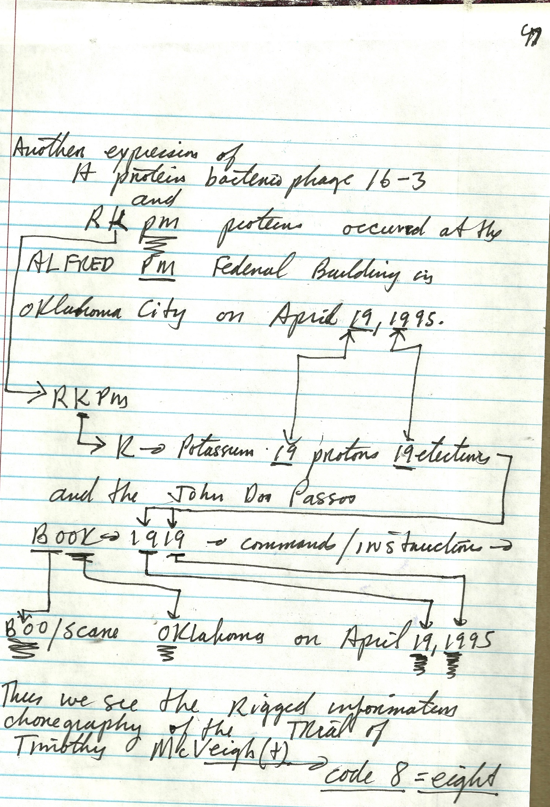 47
Another expression of
A protein bacteriophage 16-3
and
RK pm proteins occured at the
ALFRED PM Federal Building in
OKlahoma City on April 19, 1995.
RKPm
K → Potassium 19 protons 19 electrons
and the John Dos Passos
BOOK → 1919 → commands/instructions →
BOO/scare OKlahoma on April 19, 1995
Thus we see the Rigged information
choregraphy of the TRial of
Timothy McVeigh(t) → code 8 = eight